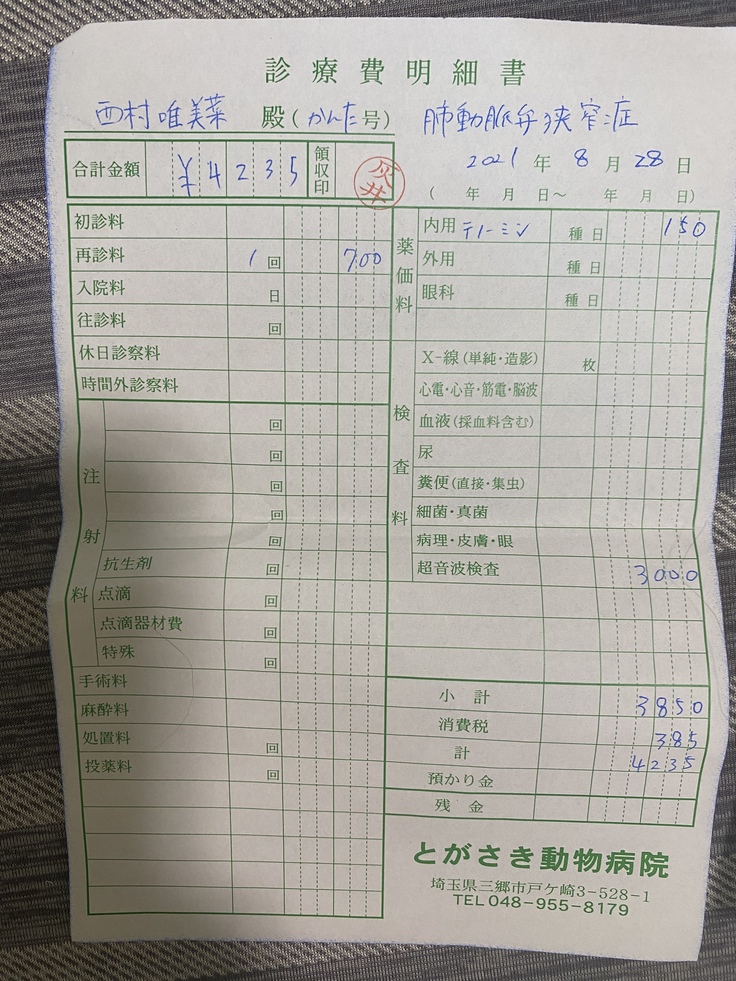 診療費明細書
西村唯美菜 殿(かんた号) 肺動脈弁狭窄症
2021年8月28日
合計金額 ¥4235 領収印 灰井
( 年 月 日〜 年 月 日)
初診料
再診料 1回 700
入院料 日
往診料 回
休日診察料
時間外診察料
注射料
回
回
回
回
回
抗生剤 回
点滴 回
点滴器材費 回
特殊 回
手術料
麻酔料
処置料 回
投薬料 回
薬価料
内用 テノーミン 種 日 150
外用 種 日
眼科 種 日
検査料
X-線(単純・造影) 枚
心電・心音・筋電・脳波
血液(採血料含む)
尿
糞便(直接・集虫)
細菌・真菌
病理・皮膚・眼
超音波検査 3000
小計 3850
消費税 385
計 4235
預かり金
残金
とがさき動物病院
埼玉県三郷市戸ケ崎3-528-1
TEL048-955-8179